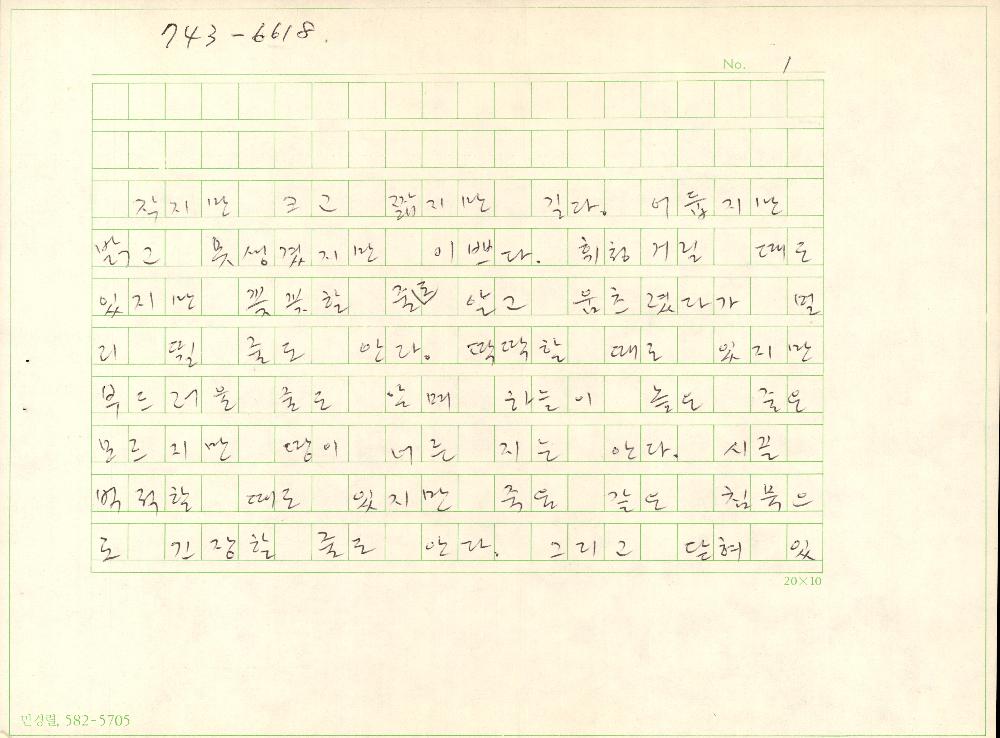 743-6618.
No. 1
작지만 크고 짧지만 길다. 어둡지만
밝고 못생겼지만 이쁘다. 휘청거릴 때도
있지만 꼿꼿할 줄도 알고 움츠렸다가 멀
리 뛸 줄도 안다. 딱딱할 때도 있지만
부드러울 줄도 알며 하늘이 높은 줄은
모르지만 땅이 너른 지는 안다. 시끌
벅적할 때도 있지만 죽음 같은 침묵으
로 긴장할 줄도 안다. 그리고 닫혀 있
20×10
민경렬, 582-5705